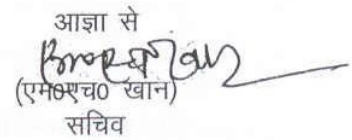 आज्ञा से
(एम०एच० खान)
सचिव